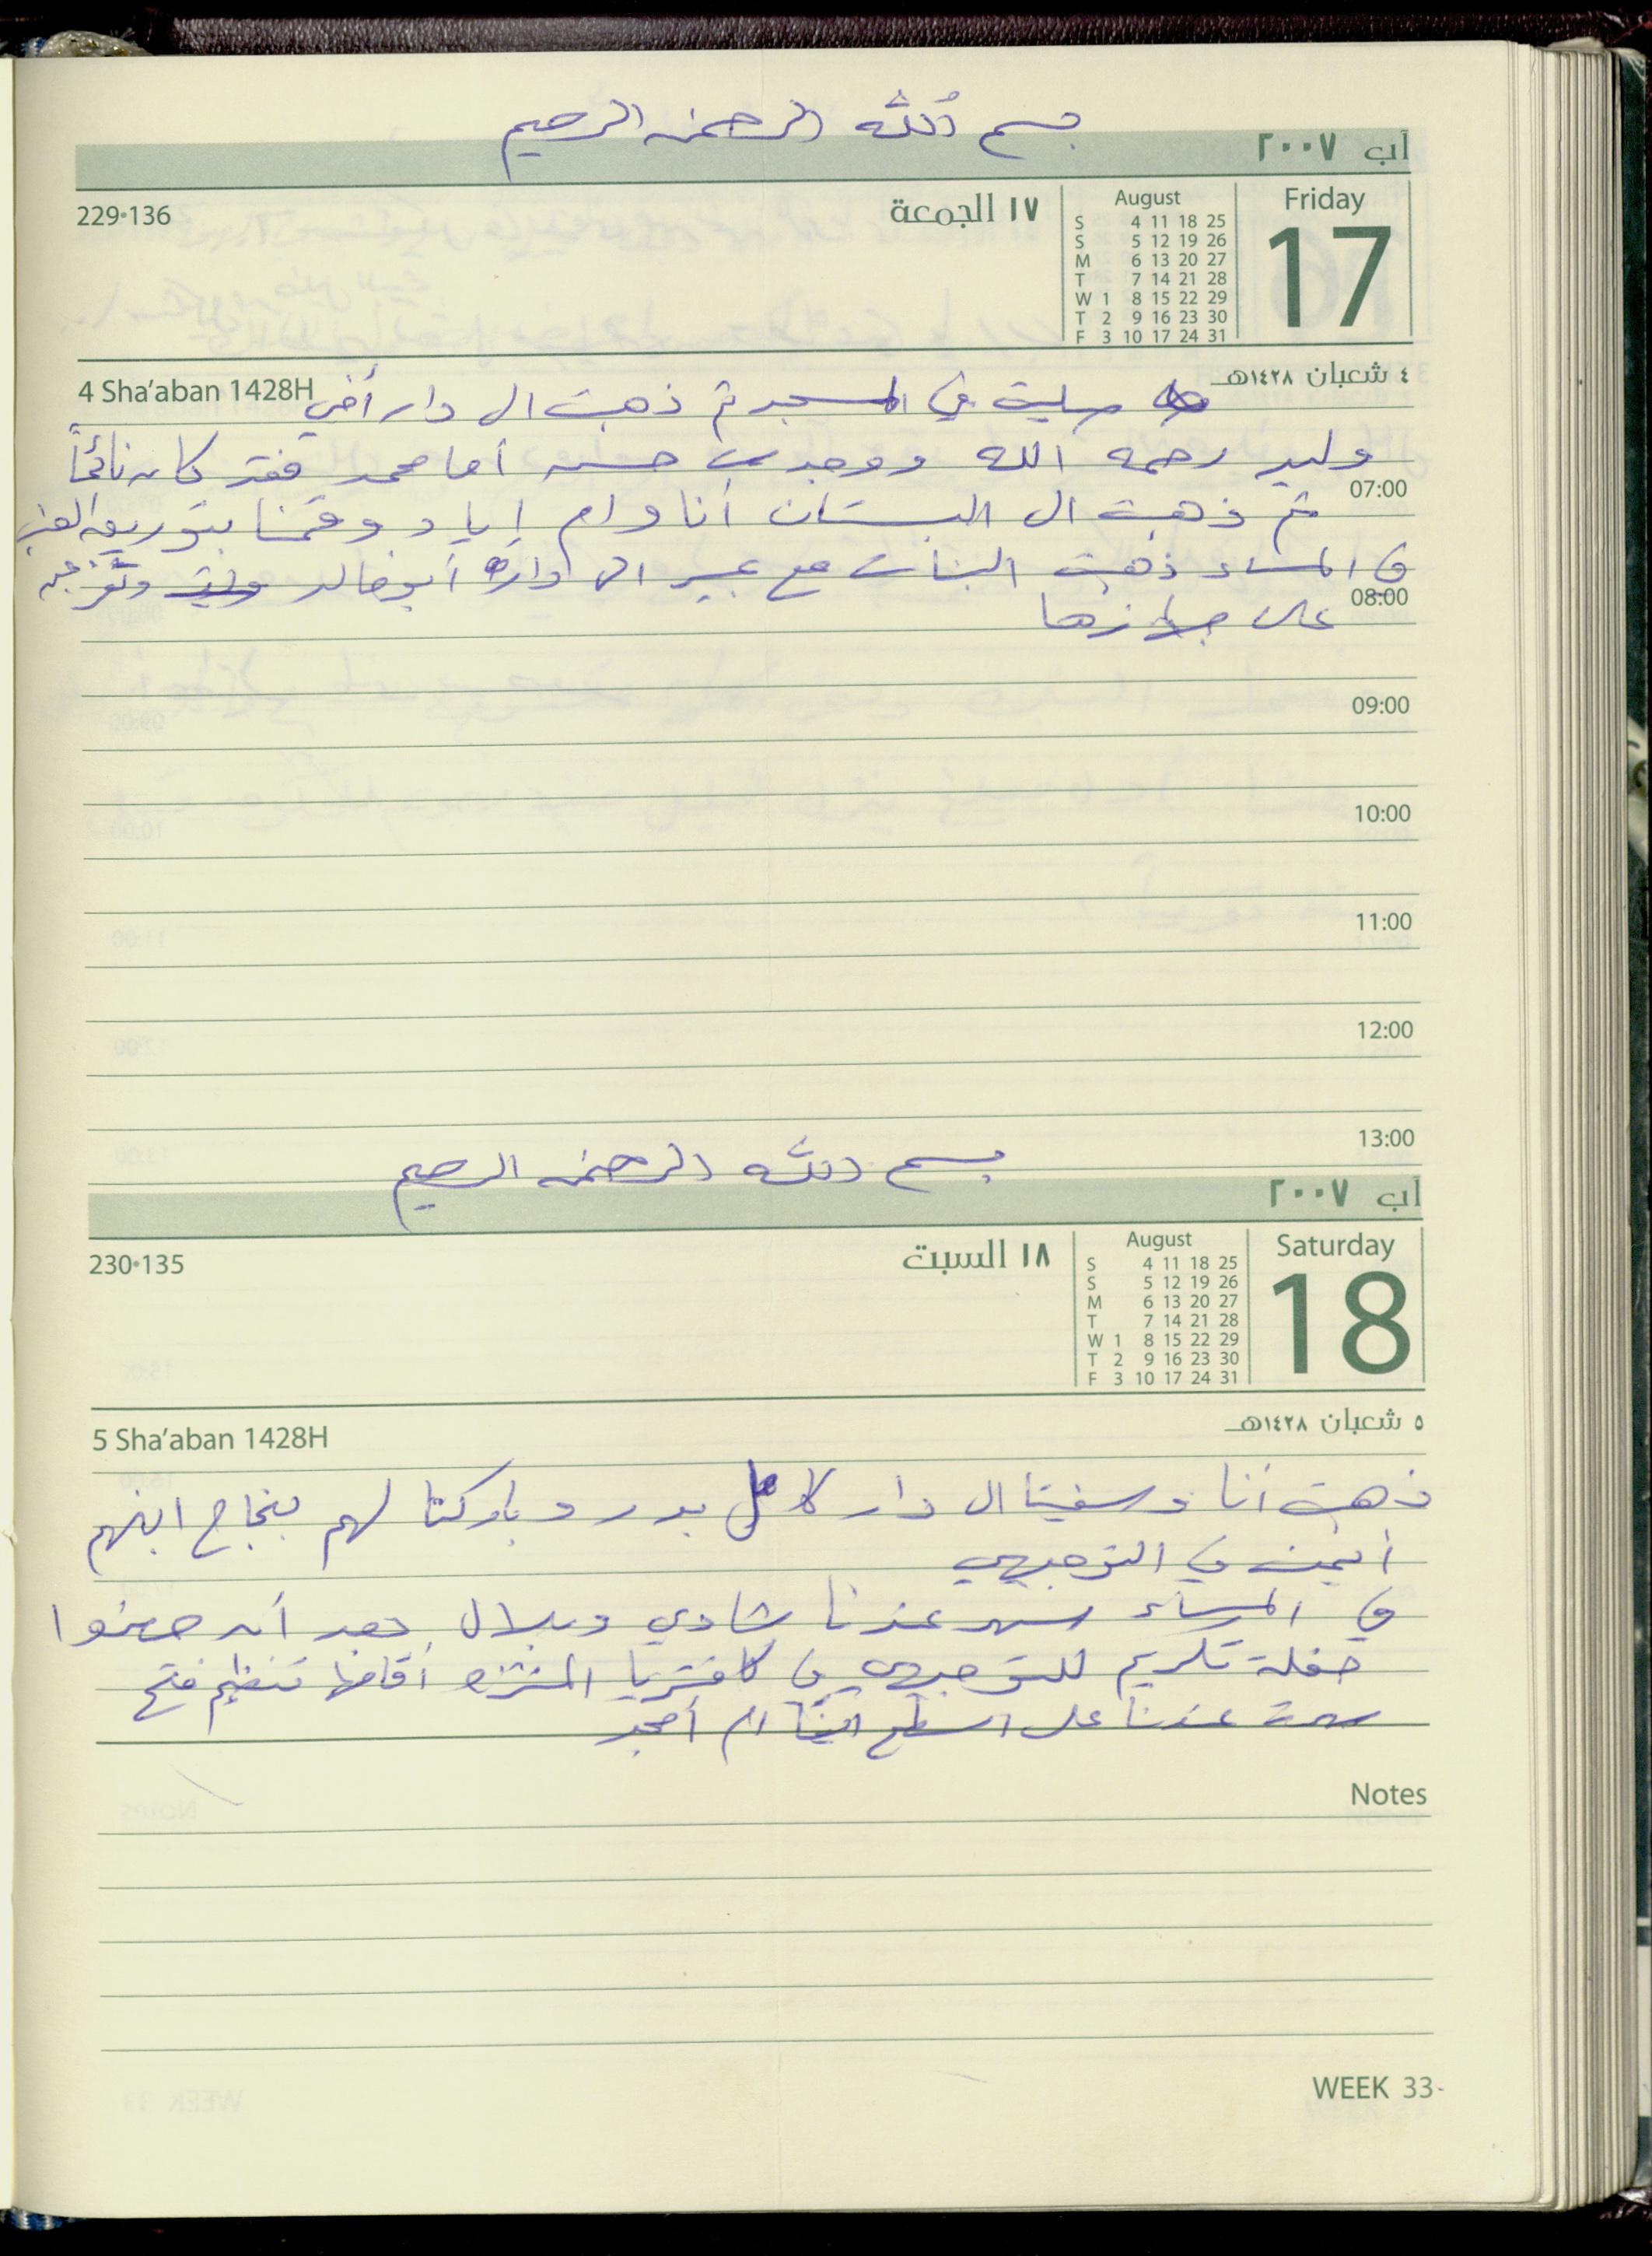 بسم الله الرحمن الرحيم
آب ٢٠٠٧
229•136
١٧ الجمعة
August
S 4 11 18 25
S 5 12 19 26
M 6 13 20 27
T 7 14 21 28
W 1 8 15 22 29
T 2 9 16 23 30
F 3 10 17 24 31
Friday
17
4 Sha'aban 1428H
٤ شعبان ١٤٢٨هـ
صليت في المسجد ثم ذهبت الى دار أخي
وليد رحمه الله ووجدت حسن أما محمد فقد كان نائماً
07:00
ثم ذهبت الى البستان أنا وام اياد وقمنا بتوريق العنب
في المساء ذهبت البنات مع عبير الى دار أبو خالد وتفرجن
08:00
على جهازها
09:00
10:00
11:00
12:00
13:00
بسم الله الرحمن الرحيم
آب ٢٠٠٧
230•135
١٨ السبت
August
S 4 11 18 25
S 5 12 19 26
M 6 13 20 27
T 7 14 21 28
W 1 8 15 22 29
T 2 9 16 23 30
F 3 10 17 24 31
Saturday
18
5 Sha'aban 1428H
٥ شعبان ١٤٢٨هـ
ذهبت أنا وسفيتا الى دار كامل بدر وباركنا لهم بنجاح ابنهم
أيمن في التوجيهي
في المساء سهر عندنا شادي وبلال بعد أن حضروا
حفلة تكريم للتوجيهي في كافتريا المنتزه أقامها تنظيم فتح
سهرت عندنا على السطح أيضاً ام أمجد
Notes
WEEK 33